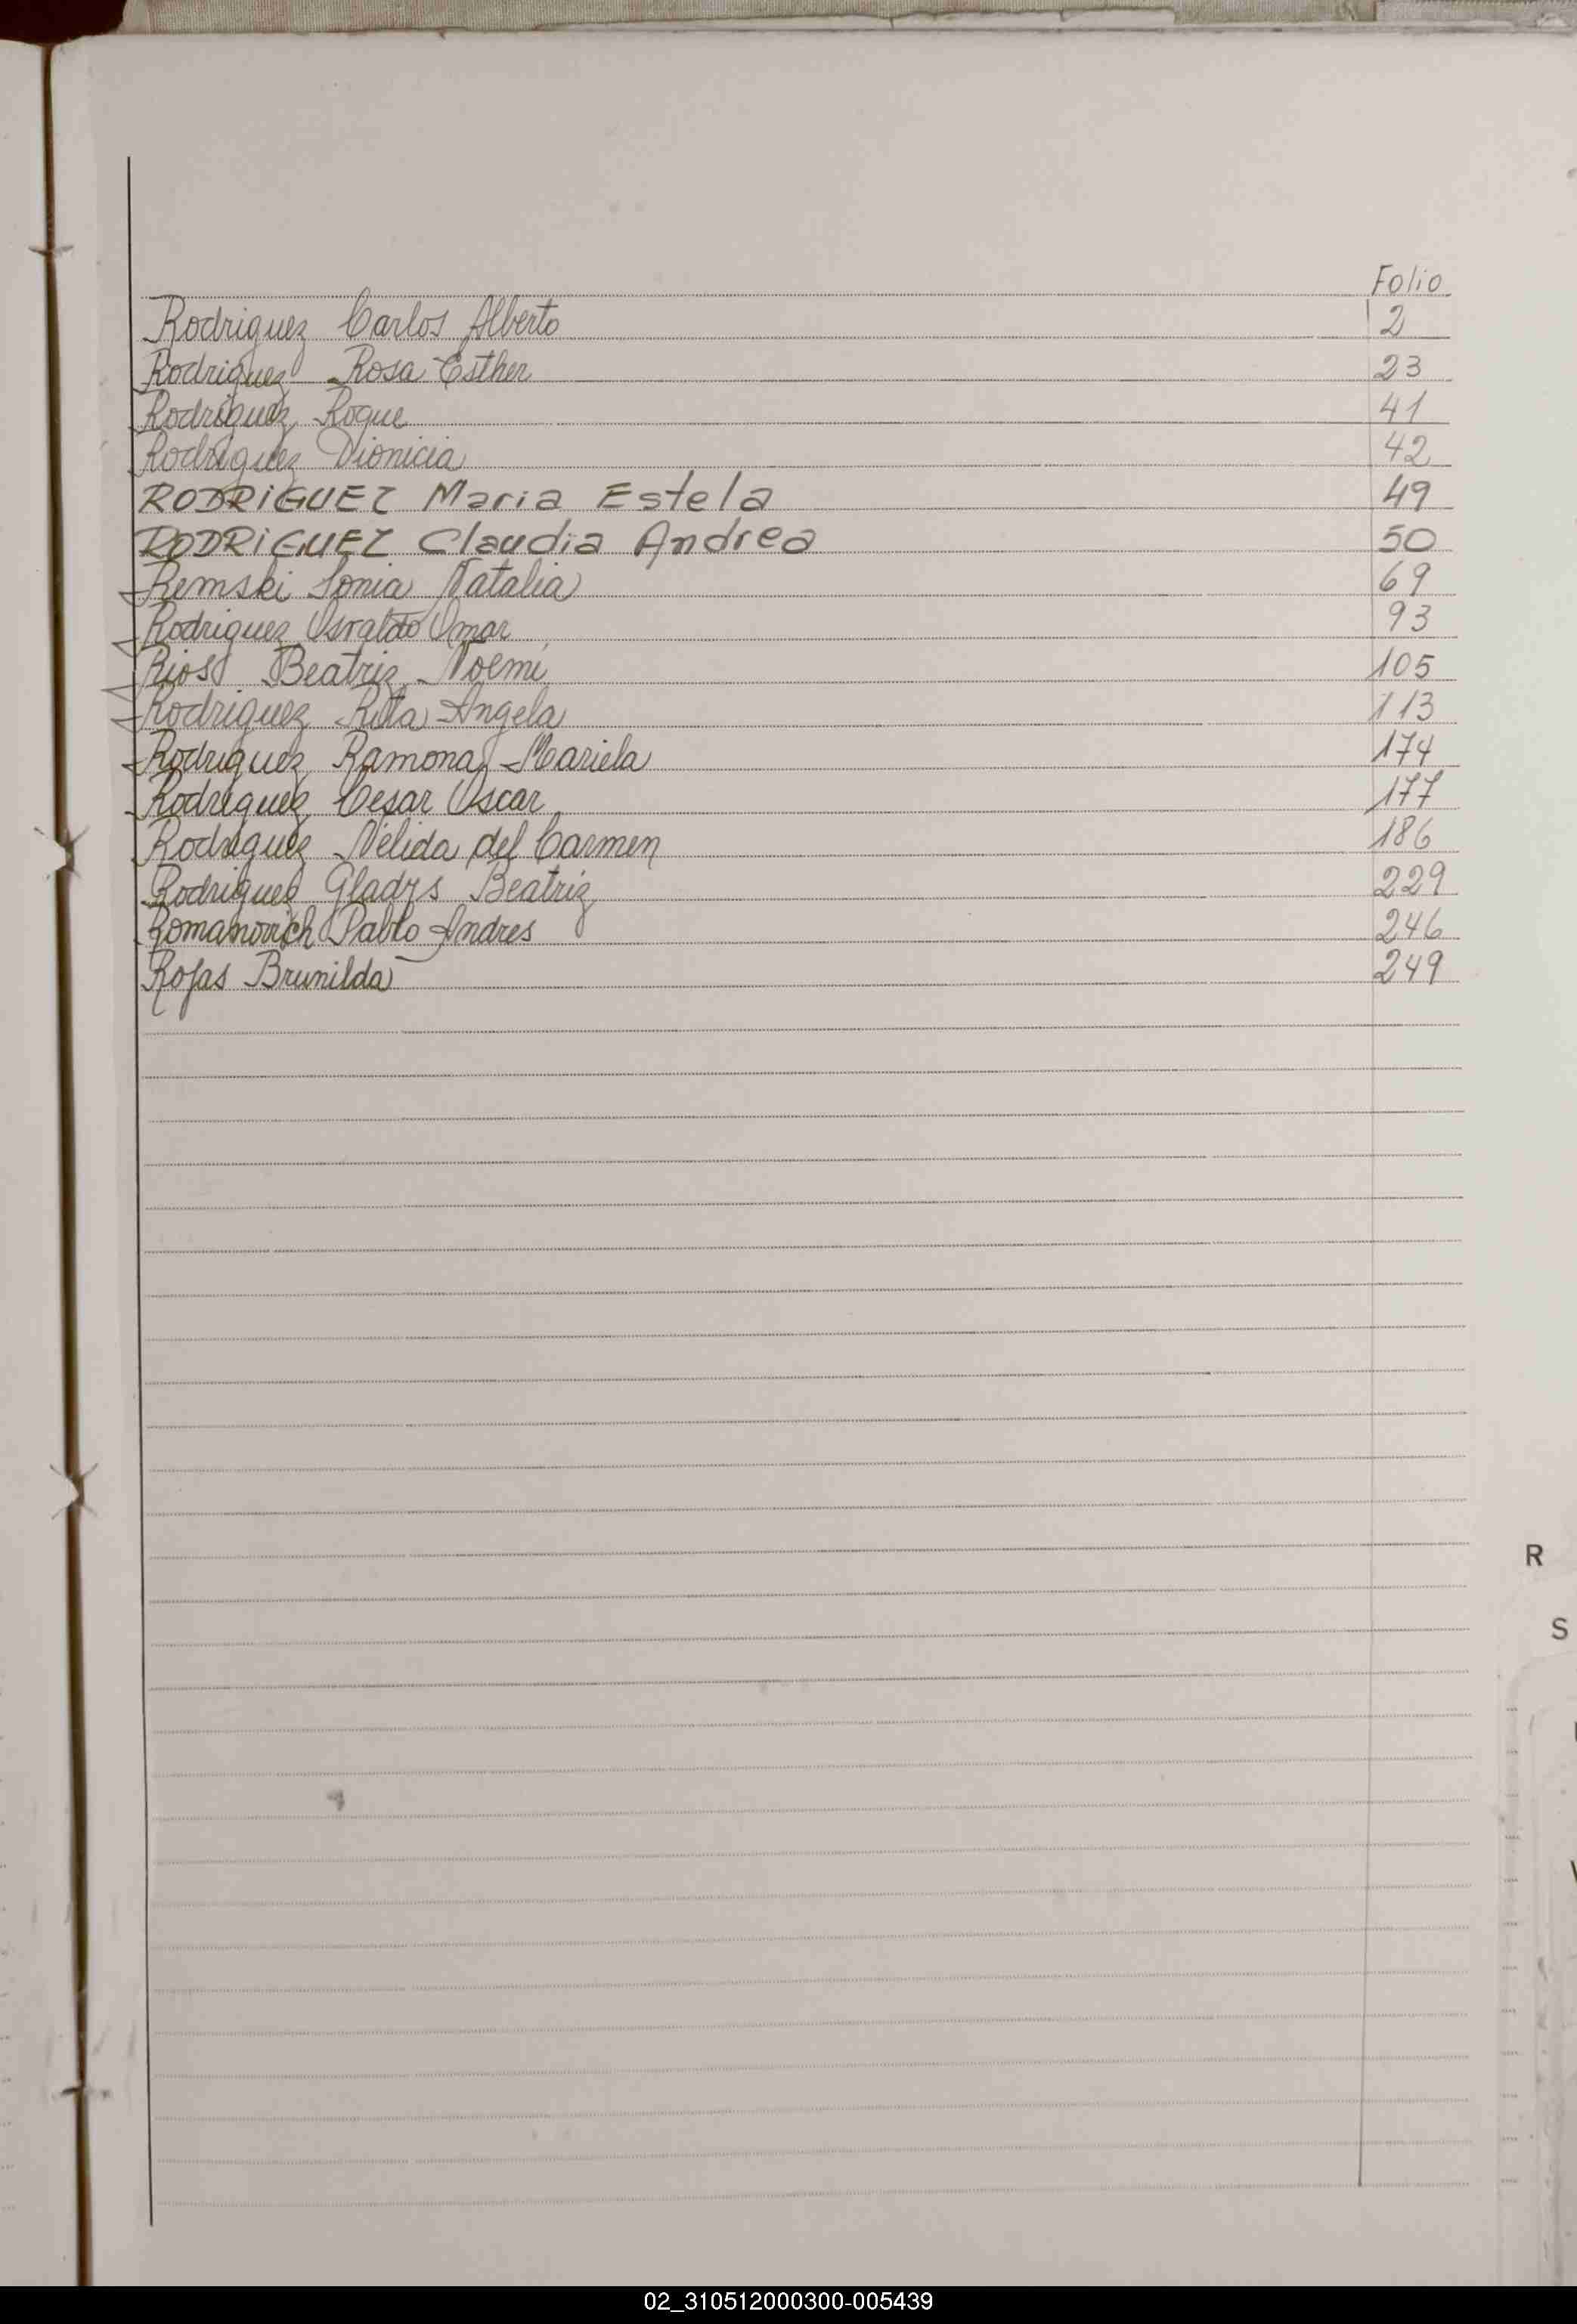 Folio
Rodriguez Carlos Alberto 2
Rodriguez Rosa Esther 23
Rodriguez Roque 41
Rodriguez Dionicia 42
RODRIGUEZ Maria Estela 49
RODRIGUEZ Claudia Andrea 50
Remski Sonia Natalia 69
Rodriguez Osvaldo Omar 93
Rios Beatriz Noemi 105
Rodriguez Rita Angela 113
Rodriguez Ramona Mariela 174
Rodriguez Cesar Oscar 177
Rodriguez Nélida del Carmen 186
Rodriguez Gladys Beatriz 229
Romanovich Pablo Andres 246
Rojas Brunilda 249
R
S
02_310512000300-005439